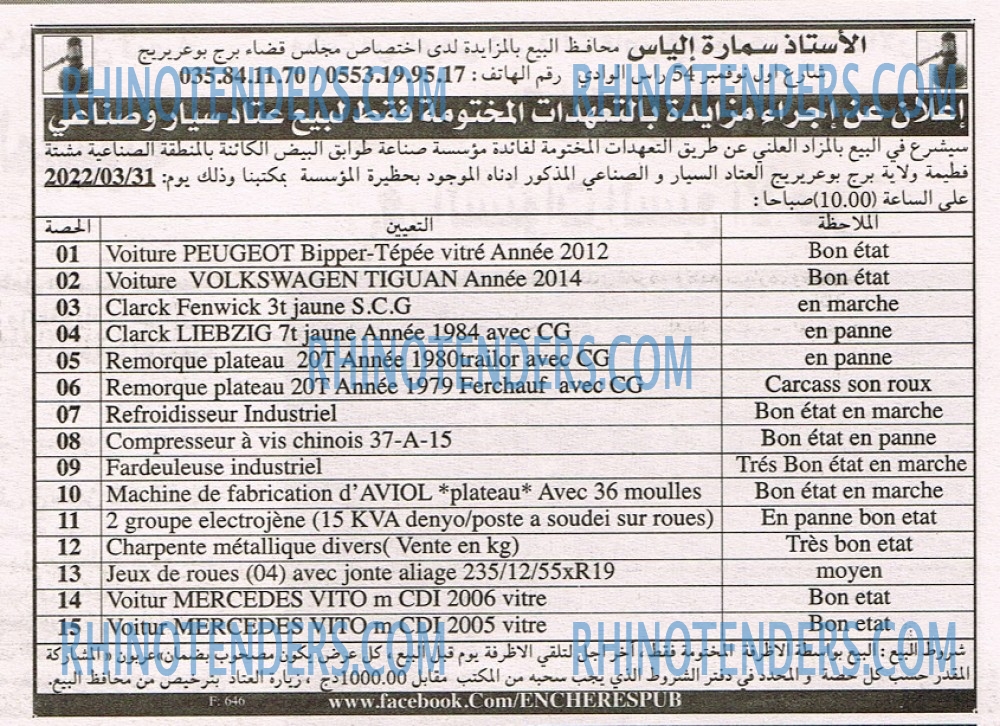 الأستاذ سمارة إلياس محافظ البيع بالمزايدة لدى اختصاص مجلس قضاء برج بوعريريج
شارع اول نوفمبر 54 راس الوادي رقم الهاتف : 0553.19.95.17 / 035.84.11.70
RHINOTENDERS.COM RHINOTENDERS.COM
إعلان عن إجراء مزايدة بالتعهدات المختومة فقط لبيع عتاد سيار وصناعي
سيشرع في البيع بالمزاد العلني عن طريق التعهدات المختومة لفائدة مؤسسة صناعة طوابق البيض الكائنة بالمنطقة الصناعية مشتة
فطيمة ولاية برج بوعريريج العتاد السيار و الصناعي المذكور ادناه الموجود بحظيرة المؤسسة بمكتبنا وذلك يوم: 2022/03/31
على الساعة (10.00)صباحا :
الحصة التعيين الملاحظة
01 Voiture PEUGEOT Bipper-Tépée vitré Année 2012 Bon état
02 Voiture VOLKSWAGEN TIGUAN Année 2014 Bon état
03 Clarck Fenwick 3t jaune S.C.G en marche
04 Clarck LIEBZIG 7t jaune Année 1984 avec CG en panne
05 Remorque plateau 20T Année 1980trailor avec CG en panne
RHINOTENDERS.COM
06 Remorque plateau 20T Année 1979 Ferchauf avec CG Carcass son roux
07 Refroidisseur Industriel Bon état en marche
08 Compresseur à vis chinois 37-A-15 Bon état en panne
09 Fardeuleuse industriel Trés Bon état en marche
10 Machine de fabrication d'AVIOL *plateau* Avec 36 moulles Bon état en marche
11 2 groupe electrojène (15 KVA denyo/poste a soudei sur roues) En panne bon etat
12 Charpente métallique divers( Vente en kg) Très bon etat
13 Jeux de roues (04) avec jonte aliage 235/12/55xR19 moyen
14 Voitur MERCEDES VITO m CDI 2006 vitre Bon etat
15 Voitur MERCEDES VITO m CDI 2005 vitre Bon etat
RHINOTENDERS.COM RHINOTENDERS.COM
شروط البيع : البيع بواسطة الاظرفة المختومة فقط، آخر اجل لتلقي الاظرفة يوم قبل البيع، كل عرض يكون مصحوب بضمان»عربون» المشاركة
المقدر حسب كل حصة و المحدد في دفتر الشروط الذي يجب سحبه من المكتب مقابل 1000.00دج ، زيارة العتاد بترخيص من محافظ البيع.
F: 646 www.facebook.Com/ENCHERESPUB